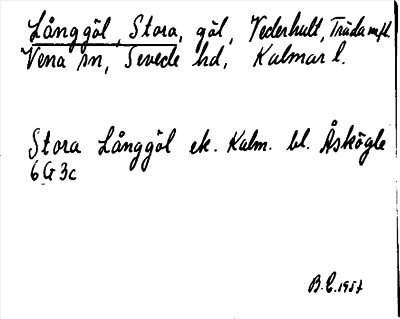 Långgöl, Stora, göl, Vederhult, Träda m.fl.
Vena sn, Sevede hd, Kalmar l.
Stora Långgöl ek. Kalm. bl. Åskögle
6G3c
B.E. 1957